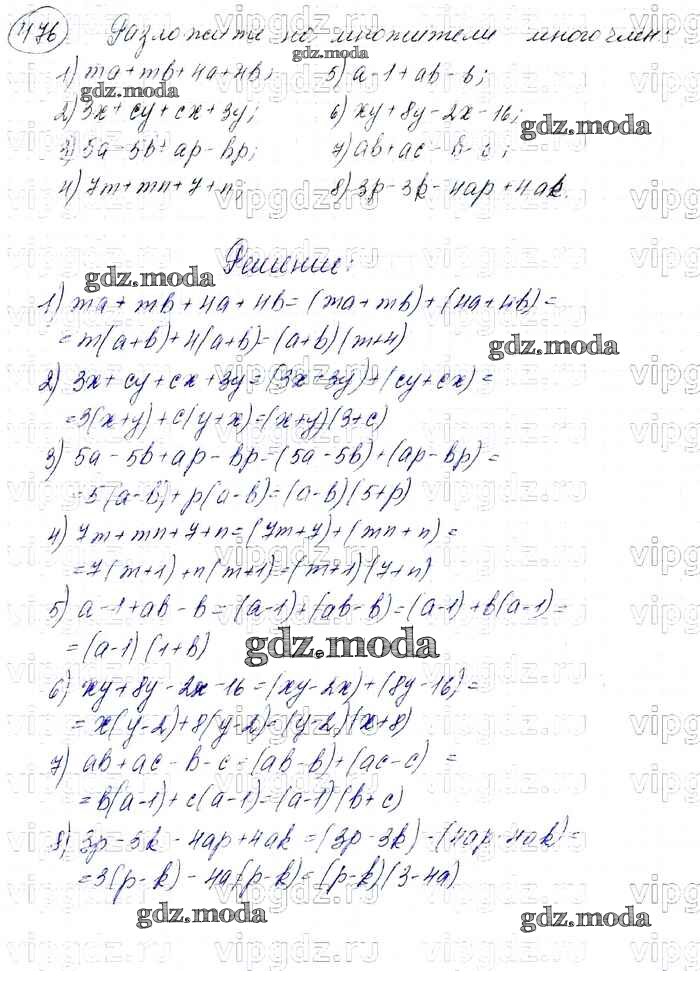 476 Разложите на множители многочлен:
1) ma + mb + 4a + 4b; 5) a - 1 + ab - b;
2) 3x + cy + cx + 3y; 6) xy + 8y - 2x - 16;
3) 5a - 5b + ap - bp; 7) ab + ac - b - c;
4) 7m + mn + 7 + n; 8) 3p - 3k - 4ap + 4ak.
Решение:
1) ma + mb + 4a + 4b = (ma + mb) + (4a + 4b) =
= m(a+b) + 4(a+b) = (a+b)(m+4)
2) 3x + cy + cx + 3y = (3x + 3y) + (cy + cx) =
= 3(x+y) + c(y+x) = (x+y)(3+c)
3) 5a - 5b + ap - bp = (5a - 5b) + (ap - bp) =
= 5(a-b) + p(a-b) = (a-b)(5+p)
4) 7m + mn + 7 + n = (7m + 7) + (mn + n) =
= 7(m+1) + n(m+1) = (m+1)(7+n)
5) a - 1 + ab - b = (a-1) + (ab - b) = (a-1) + b(a-1) =
= (a-1)(1+b)
6) xy + 8y - 2x - 16 = (xy - 2x) + (8y - 16) =
= x(y-2) + 8(y-2) = (y-2)(x+8)
7) ab + ac - b - c = (ab - b) + (ac - c) =
= b(a-1) + c(a-1) = (a-1)(b+c)
8) 3p - 3k - 4ap + 4ak = (3p - 3k) - (4ap - 4ak) =
= 3(p-k) - 4a(p-k) = (p-k)(3-4a)
gdz.moda
vipgdz.ru